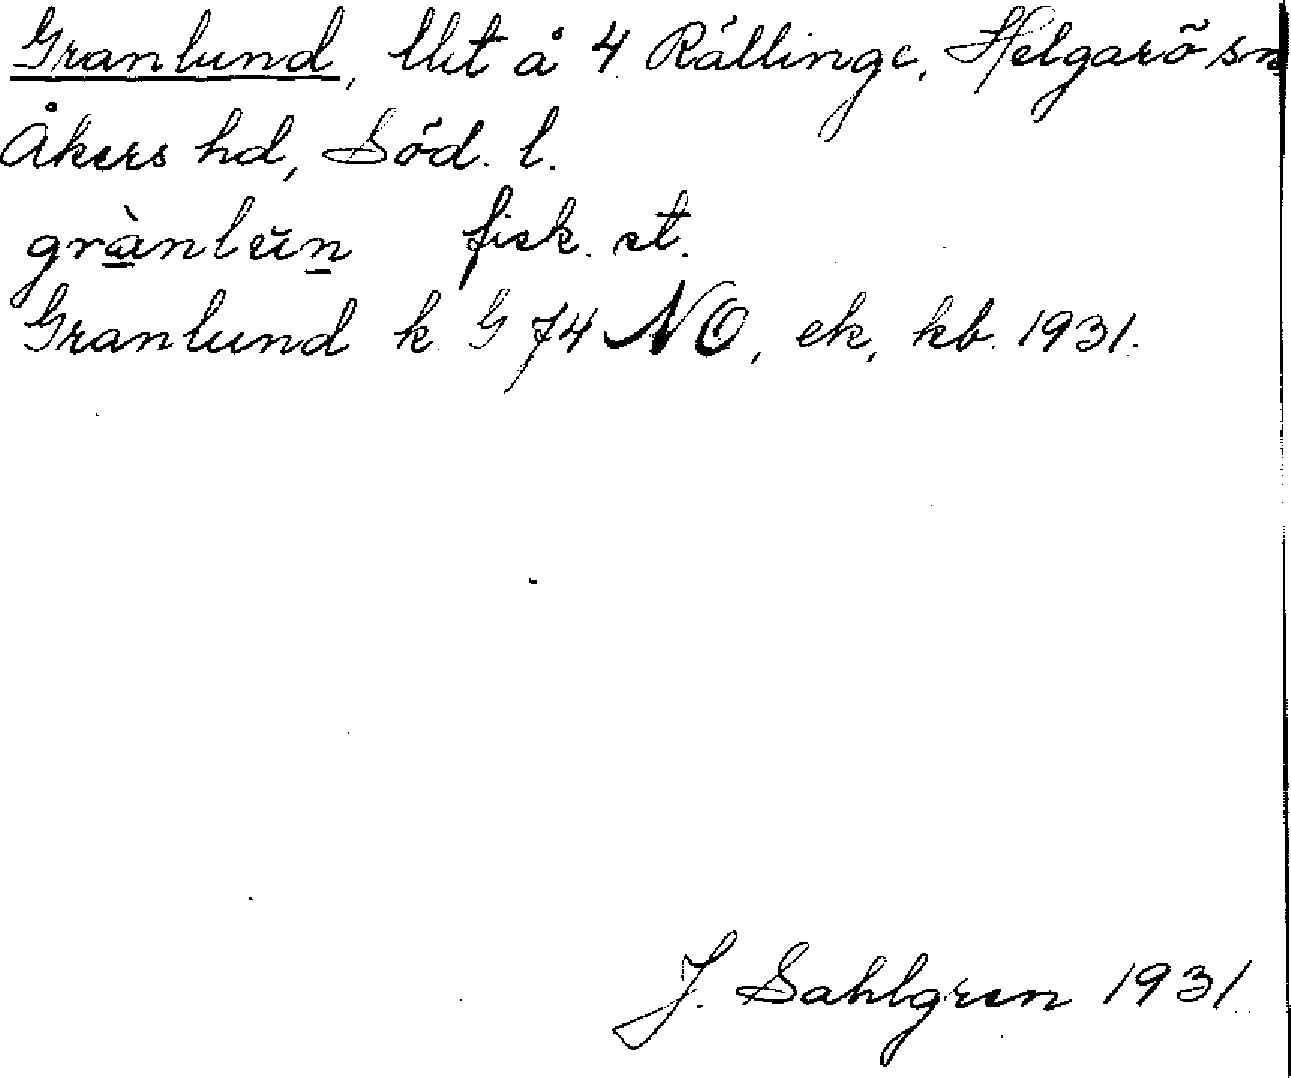 Granlund, Utt å 4 Rällinge, Helgarö sn
Åkers hd, Söd. l.
grànlŭn fisk. st.
Granlund k G 74 NO, ek, kb. 1931.
J. Sahlgren 1931